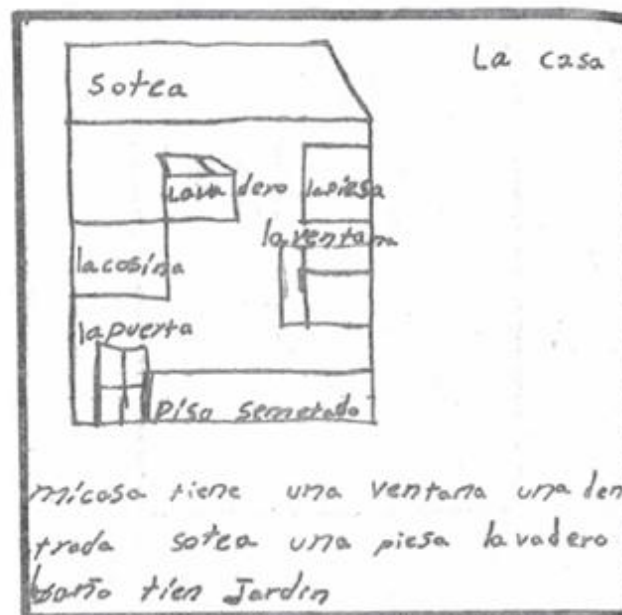 La casa
sotea
lava dero
la piesa
la ventana
la cosina
la puerta
piso semetado
micasa tiene una ventana una den
trada sotea una piesa lavadero
baño tien Jardin